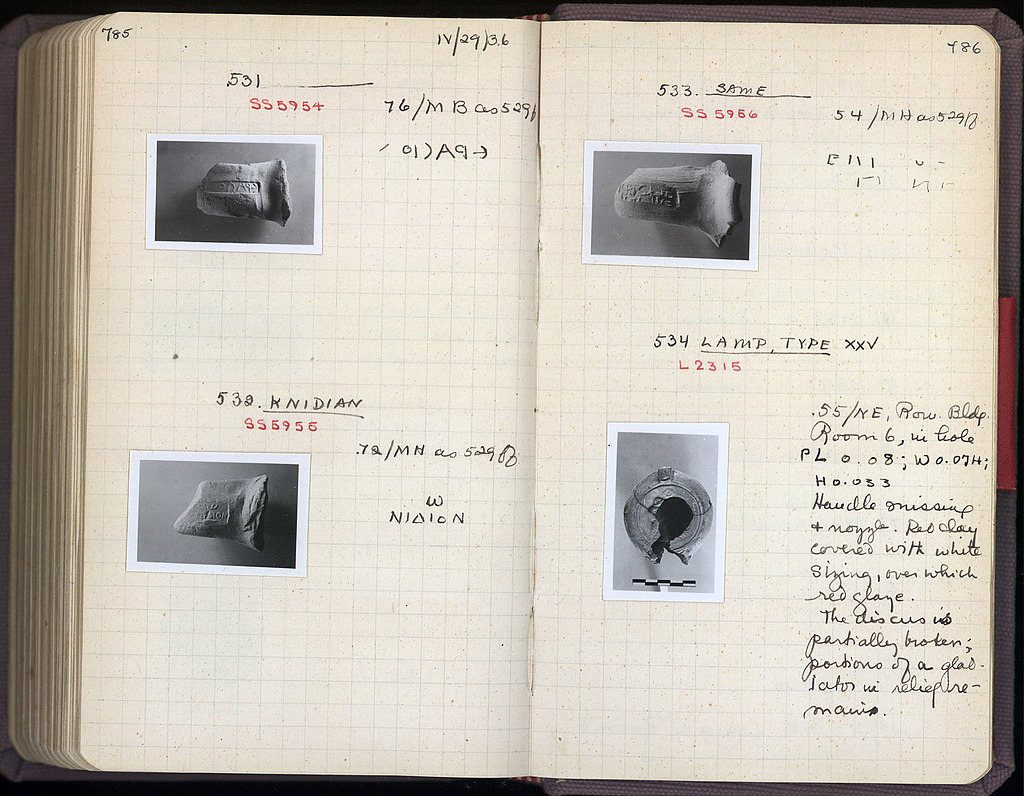 785
IV/29/36
531
SS 5954
76/MB as 529ff
532. KNIDIAN
SS 5955
.72/MH as 529ff
ω
ΝΙΔΙΟΝ
786
533. SAME
SS 5956
54/MH as 529ff.
534 LAMP, TYPE XXV
L 2315
.55/NE, Row. Bldg.
Room 6, in hole
PL 0.08; W 0.074;
H 0.033
Handle missing
+ nozzle. Red clay
covered with white
sizing, over which
red glaze.
The discus is
partially broken;
portions of a glad-
iator in relief re-
mains.